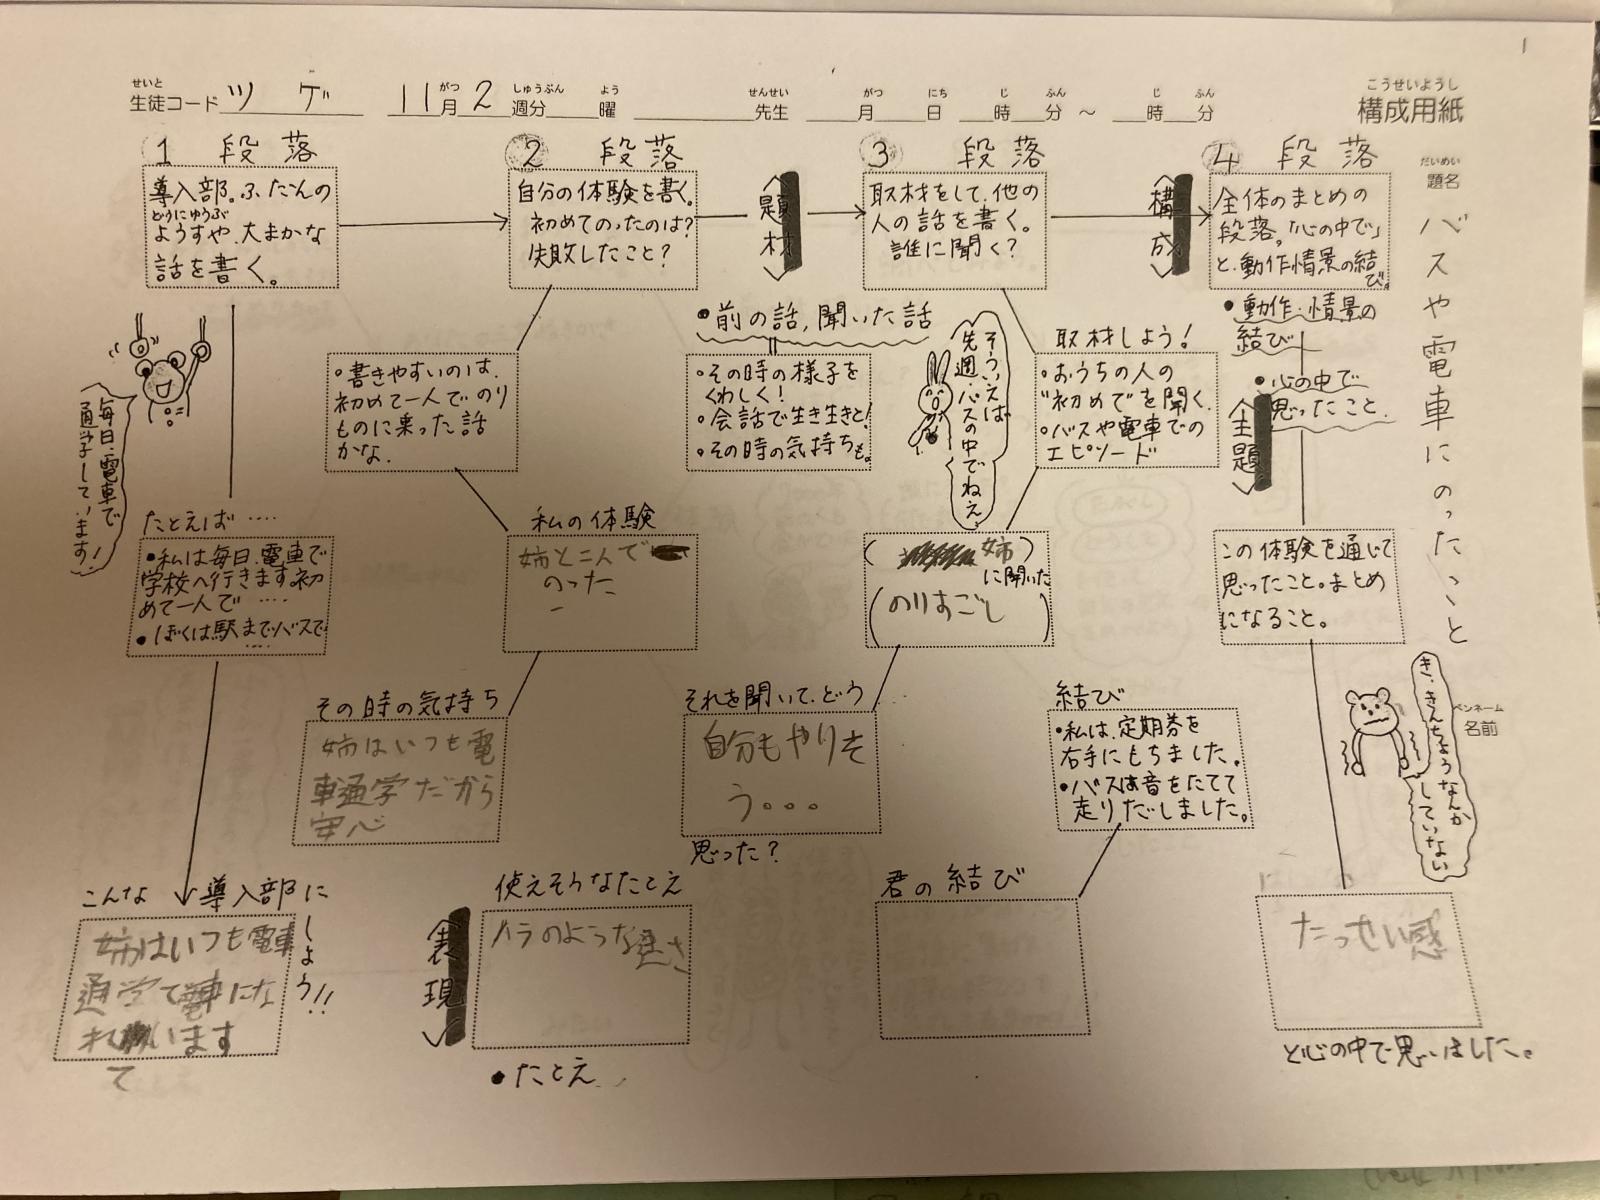 1
せいと
生徒コード ツゲ 11月 2週分 曜 先生 月 日 時 分 ～ 時 分
がつ しゅうぶん よう せんせい がつ にち じ ふん じ ふん
こうせいようし
構成用紙
だいめい
題名
バスや電車にのったこと
ペンネーム
名前
1 段落
導入部。ふだんの
どうにゅうぶ
ようすや、大まかな
話を書く。
毎日、電車で
通学しています！
たとえば‥‥
・私は毎日、電車で
学校へ行きます。初
めて一人で‥‥
・ぼくは駅までバスで
‥‥
こんな導入部にしよう!!
姉はいつも電車
通学で電車にな
れ います
て
2 段落
自分の体験を書く。
初めてのったのは？
失敗したこと？
・書きやすいのは、
初めて一人でのり
ものに乗った話
かな。
私の体験
姉と二人で
のった
その時の気持ち
姉はいつも電
車通学だから
安心
〈題材〉
・前の話、聞いた話
・その時の様子を
くわしく！
・会話で生き生きと！
・その時の気持ちも。
〈表現〉
使えそうなたとえ
のような
・たとえ
3 段落
取材をして、他の
人の話を書く。
誰に聞く？
そういえば
先週、バスの中でねえ、
取材しよう！
・おうちの人の
"初めて"を聞く。
・バスや電車での
エピソード
( 姉 )
に聞いた
(のりすごし)
それを聞いて、どう
自分もやりそ
う。。。
思った？
〈構成〉
4 段落
全体のまとめの
段落。「心の中で」
と、動作情景の結
び。
・動作・情景の
結び
・心の中で
思ったこと。
〈主題〉
この体験を通じて
思ったこと。まとめ
になること。
き、きんちょうなんか
していない
結び
・私は、定期券を
右手にもちました。
・バスは音をたてて
走りだしました。
君の結び
たっせい感
と心の中で思いました。